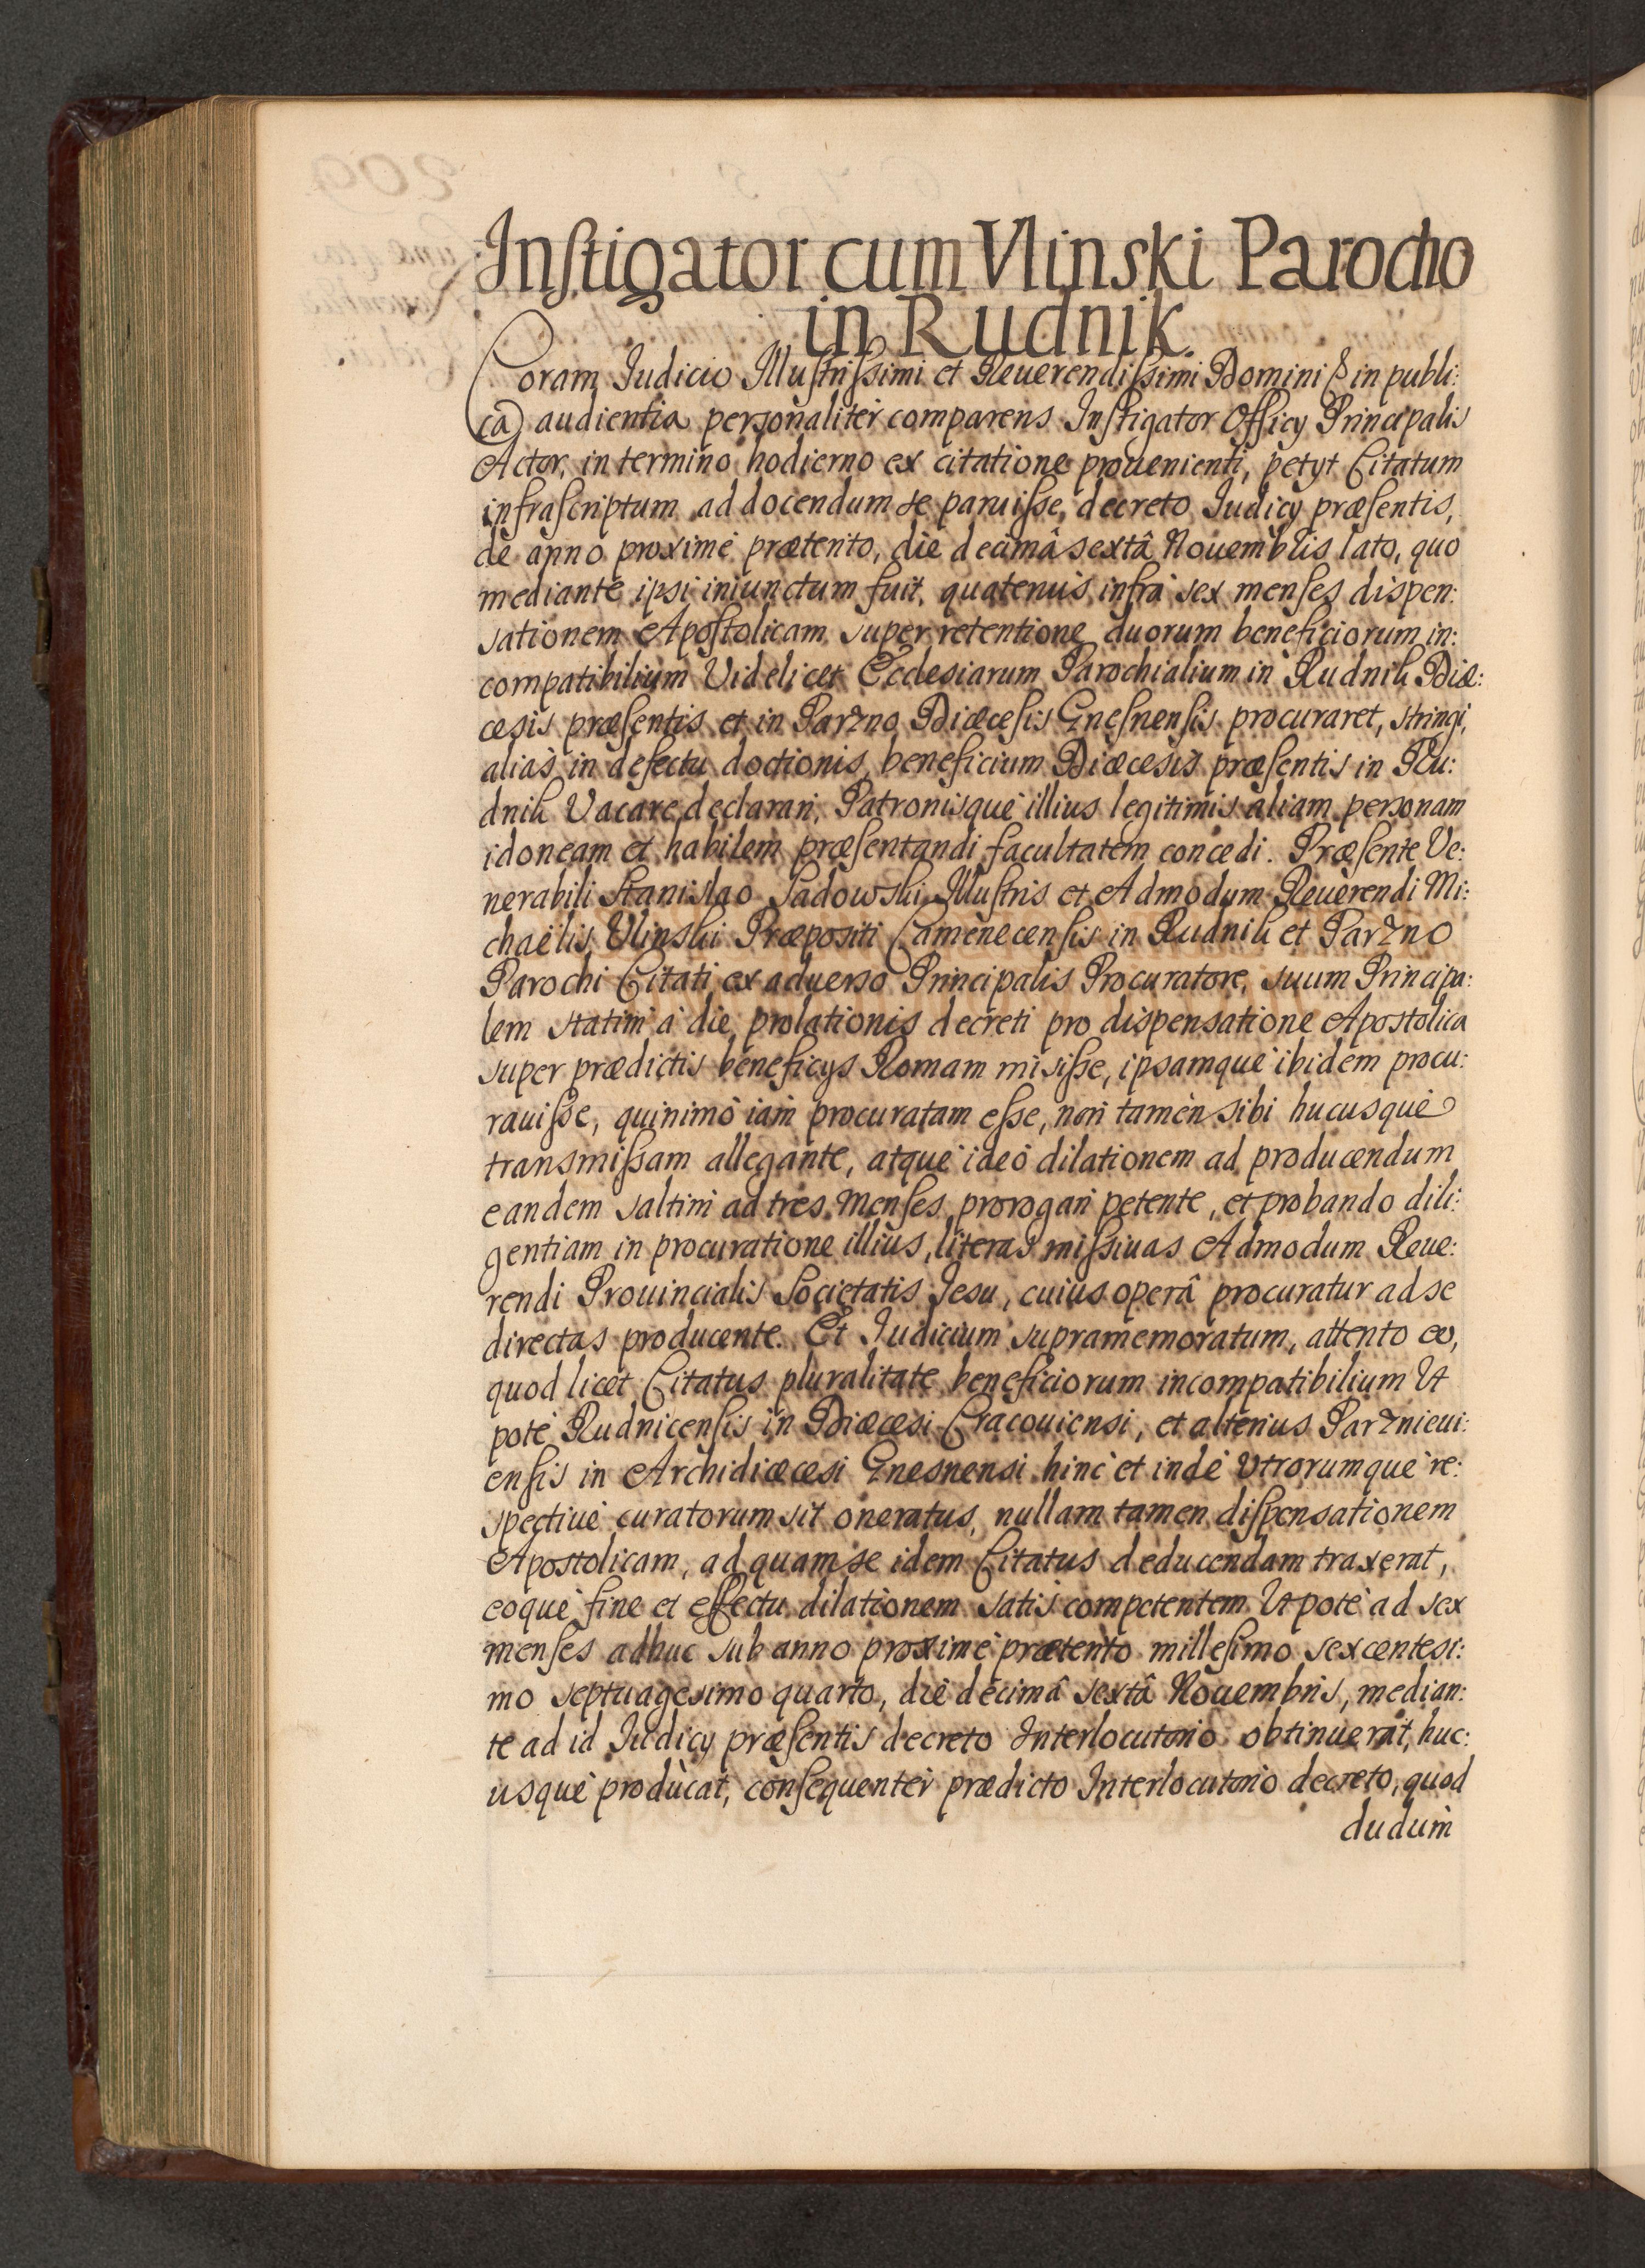 Inſtigator cum Vlinski Parocho
in Rudnik.
Coram Judicio Illuſtriſsimi et Reuerendiſsimi Domini in publi:
ca audientia personaliter comparens Inſtigator Officy Principalis
Actor, in termino hodierno ex citatione prouenienti, petyt Citatum
infraſcriptum ad docendum se paruiſse decreto Judicy præſentis,
de anno proximè prætento, die decimâ sextâ Nouembris lato, quo
mediante ipsi iniunctum fuit, quatenus infra sex menſes dispen:
sationem Apoſtolicam super retentione duorum beneficiorum in:
compatibilium Videlicet Ecclesiarum Parochialium in Rudnik Diæ:
cesis præſentis et in Parzno Diæceſis Gneſnenſis procuraret, stringi,
aliàs in defectu doctionis, beneficium Diæcesis præſentis in Ru:
dnik Vacare declarari, Patronisque illius legitimis aliam personam
idoneam et habilem præſentandi facultatem concedi. Præſente Ve:
nerabili Stanislao Sadowski Illuſtris et Admodum Reuerendi Mi:
chaëlis Vlinski Præpositi Camenecenſis in Rudnik et Parzno
Parochi Citati ex aduerso Principalis Procuratore, suum Principa:
lem statim à die prolationis decreti pro dispensatione Apostolica
super prædictis beneficys Romam misiſse, ipsamque ibidem procu:
rauiſse, quinimò iam procuratam eſse, non tamen sibi hucusque
transmiſsam allegante, atque ideò dilationem ad producendum
eandem saltim ad tres menſes prorogari petente, et probando dili:
gentiam in procuratione illius, literas miſsiuas Admodum Reue:
rendi Prouincialis Societatis Jesu, cuius operâ procuratur ad se
directas producente. Et Judicium supramemoratum, attento eo,
quod licet Citatus pluralitate beneficiorum incompatibilium Vt
potè Rudnicenſis in Diæcesi Cracouiensi, et alterius Parznieui:
enſis in Archidiæcesi Gnesnensi hinc et indè Vtrorumque re:
spectiuè curatorum sit oneratus, nullam tamen diſpensationem
Apostolicam, ad quam se idem Citatus deducendam traxerat,
eoque fine et effectu dilationem satis competentem Vt potè ad sex
menſes adhuc sub anno proximè prætento milleſimo sexcentesi:
mo septuagesimo quarto, die decimâ sextâ Nouembris, median:
te ad id Judicy præſentis decreto Interlocutorio obtinuerat, huc:
usque producat, conſequenter prædicto Interlocutorio decreto, quod
dudum